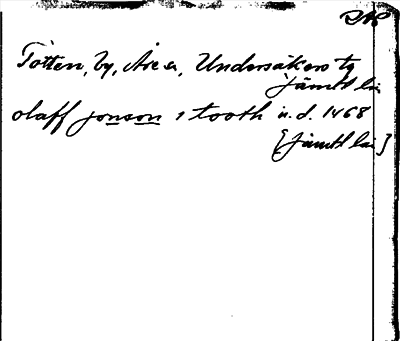 DN
Totten, by, Åre sn, Undersåkers tg
Jämtl län
olaff jonson i tooth u. d. 1468
[Jämtl län]